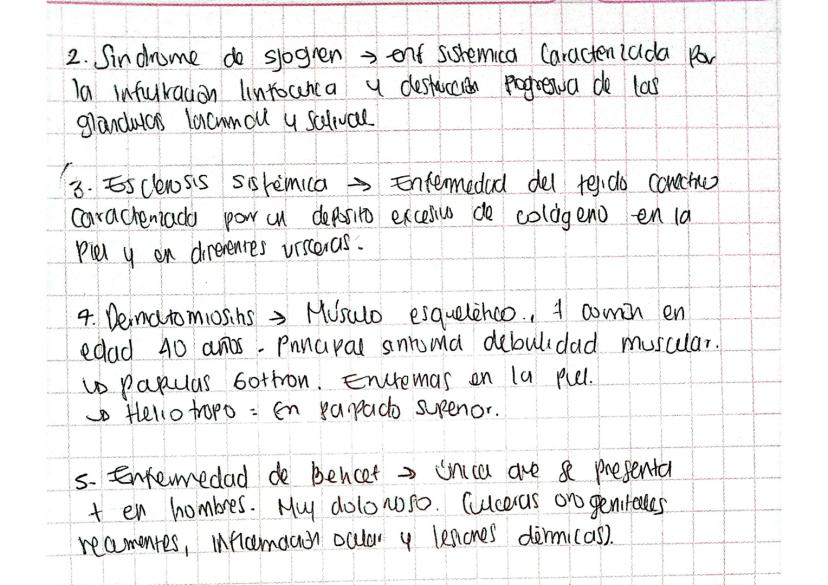 2. Sindrome de sjogren → enf sistemica Caracterizada por
la infiltración linfocitica y destrucción Progresiva de las
glandulas lacrimal y salival
3- Esclerosis sistémica → Enfermedad del tejido conectivo
caracterizado por un deposito excesivo de colágeno en la
Piel y en diferentes visceras.
4. Dermatomiositis → Músculo esquelético., 1 común en
edad 40 años. Principal sintoma debilidad muscular.
↳ papulas Gottron. Eritemas en la piel.
↳ Heliotropo = En parpado superior.
5- Enfermedad de Behcet → única que se presenta
+ en hombres. Muy doloroso. (ulceras orogenitales
recurrentes, inflamación ocular y lesiones dérmicas).